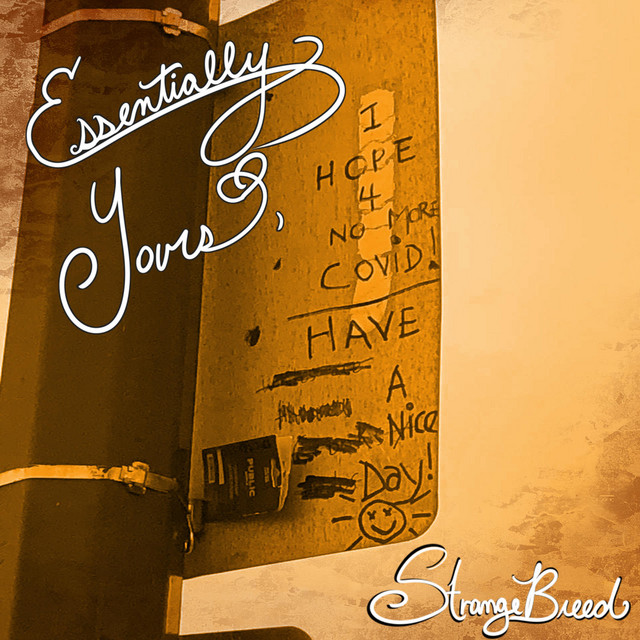 Essentially
Yours,
I
HOPE
4
NO MORE
COVID!
HAVE
A
Nice
Day!
PUBLIC
StrangeBreed